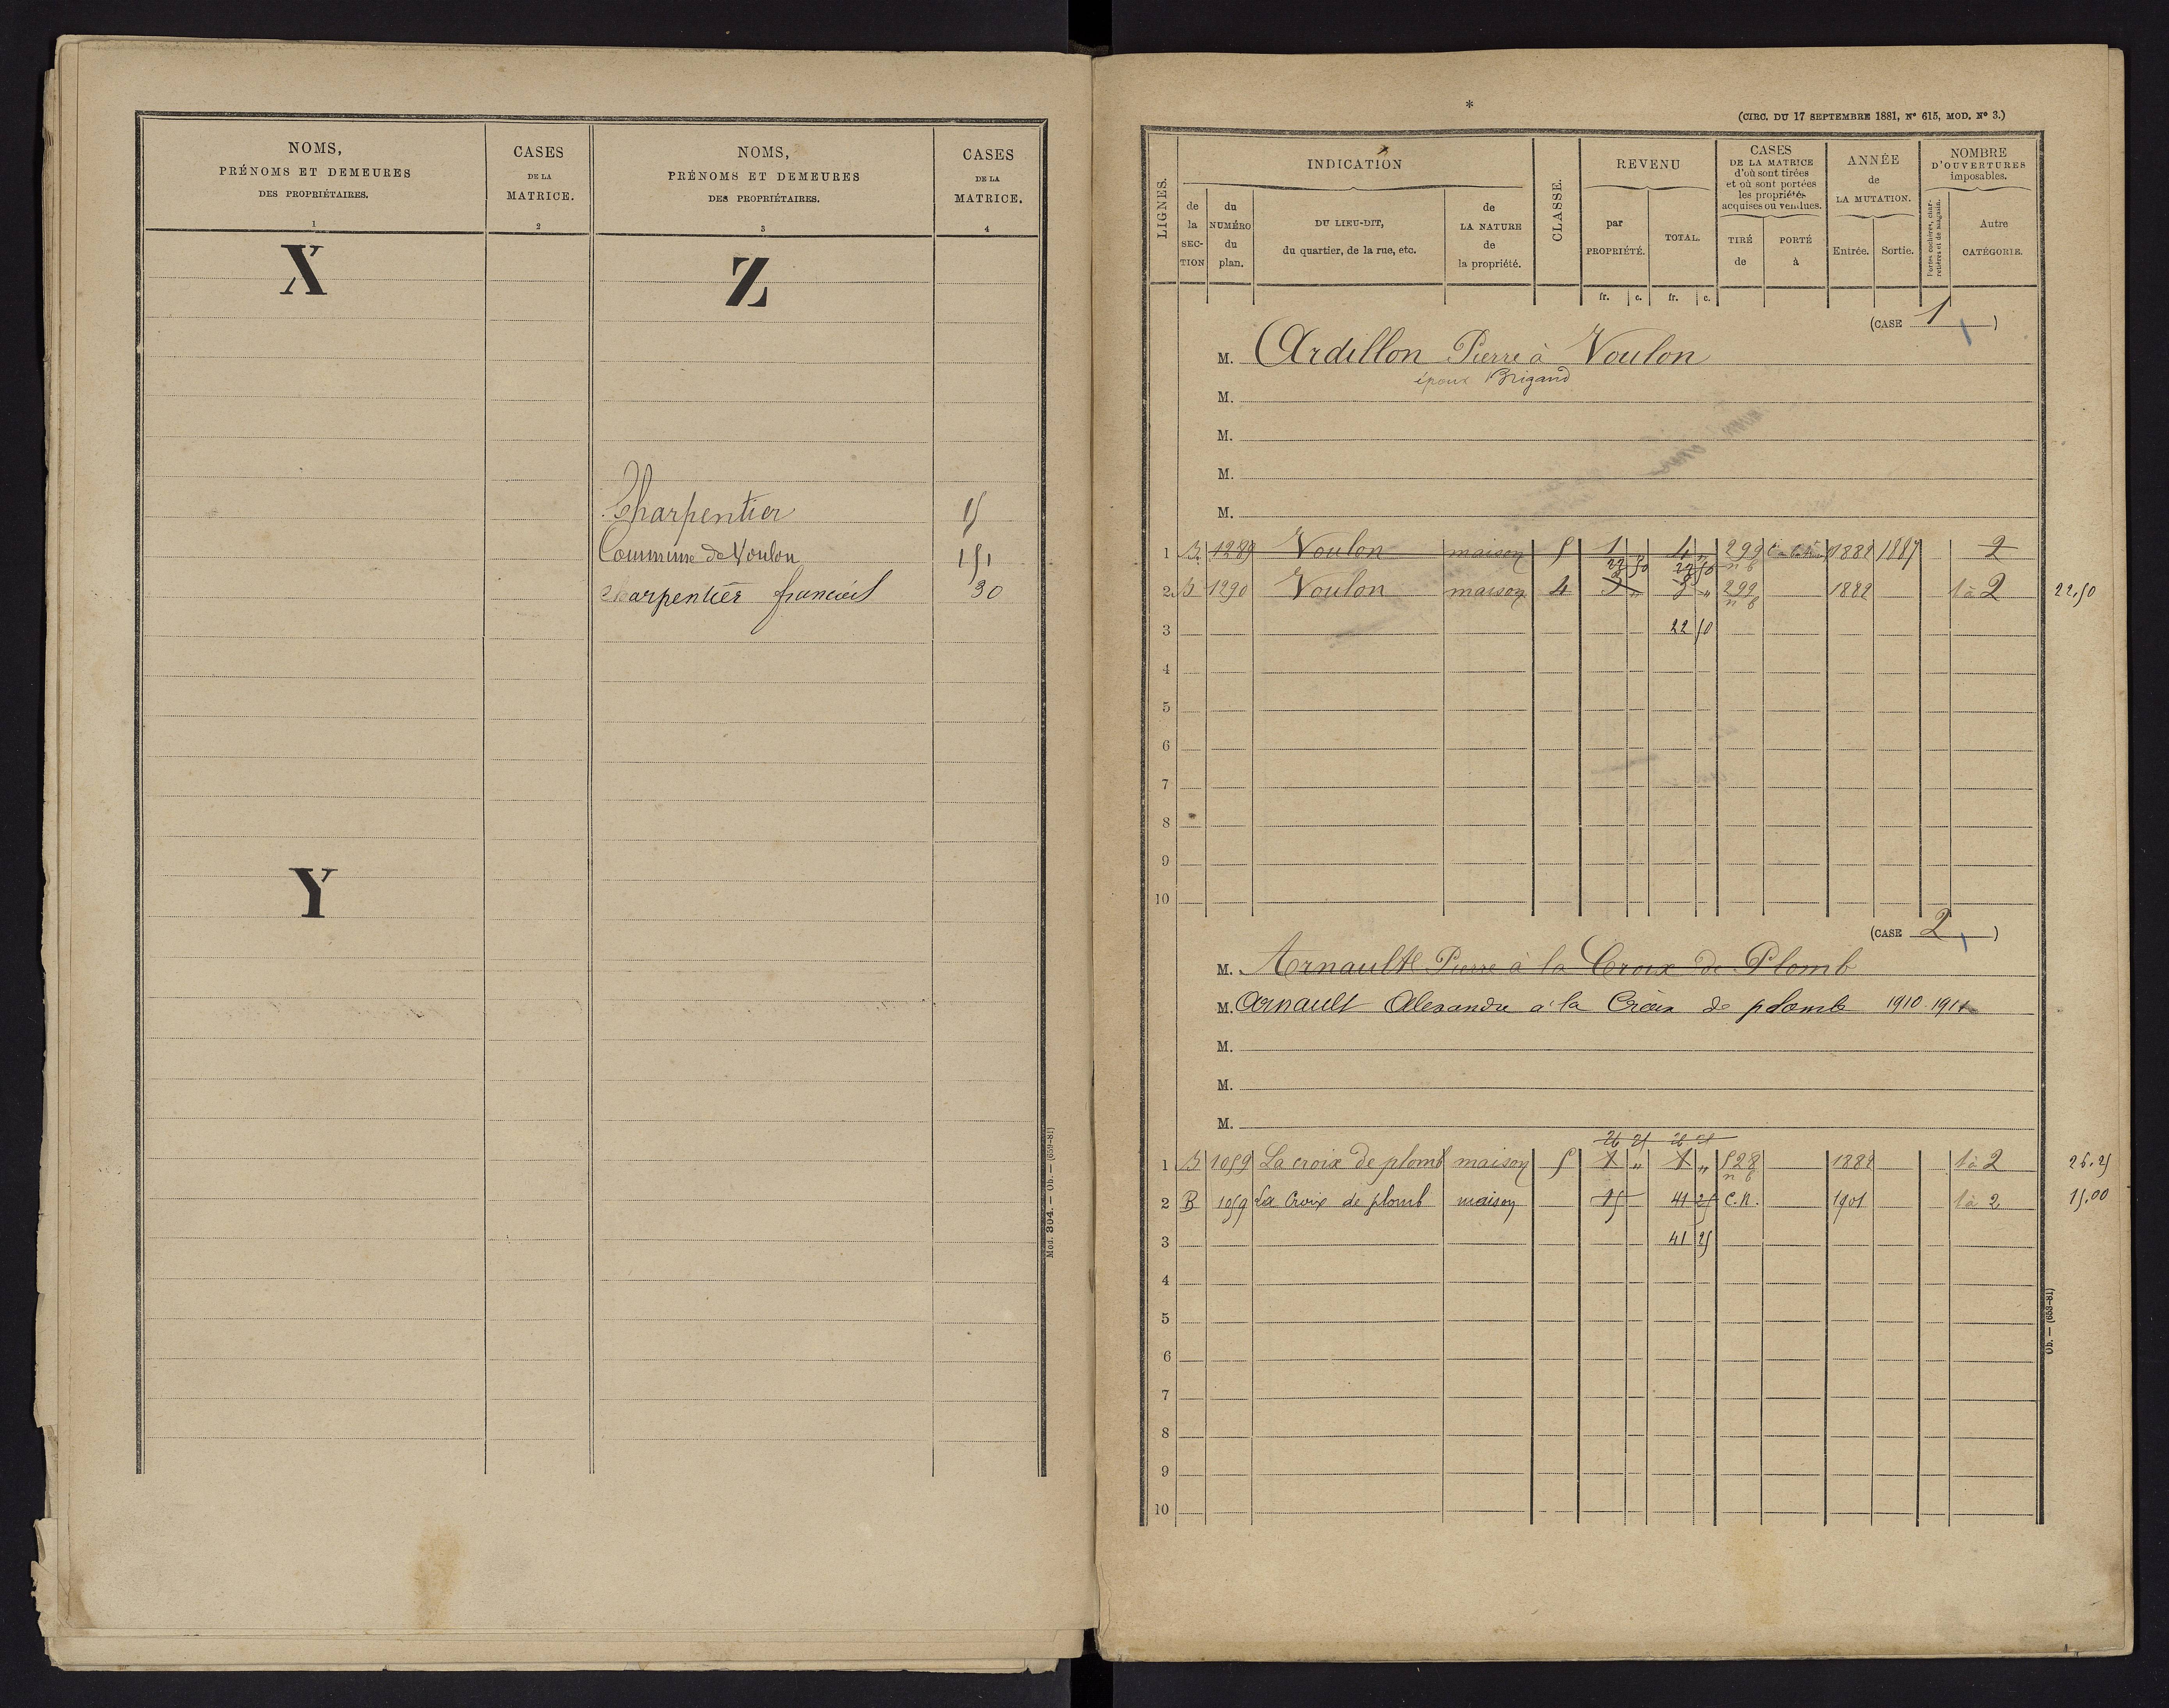 NOMS,
PRÉNOMS ET DEMEURES
DES PROPRIÉTAIRES.
1
CASES
DE LA
MATRICE.
2
NOMS,
PRÉNOMS ET DEMEURES
DES PROPRIÉTAIRES.
3
CASES
DE LA
MATRICE.
4
X
Z
Charpentier 15
Commune de Voulon 151
charpentier francois 30
Y
Mod. 304. — Ob. — (659-81)
*
(CIRC. DU 17 SEPTEMBRE 1881, N° 615, MOD. N° 3.)
LIGNES.
INDICATION
de la SECTION
du NUMÉRO du plan.
DU LIEU-DIT,
du quartier, de la rue, etc.
de LA NATURE de la propriété.
CLASSE.
REVENU
par PROPRIÉTÉ.
TOTAL.
fr. c. fr. c.
CASES
DE LA MATRICE
d'où sont tirées
et où sont portées
les propriétés
acquises ou vendues.
TIRÉ de
PORTÉ à
ANNÉE
de
LA MUTATION.
Entrée. Sortie.
NOMBRE
D'OUVERTURES
imposables.
Portes cochères, charretières et de magasin.
Autre CATÉGORIE.
(CASE 1)
M. Ardillon Pierre à Voulon
époux Brigand
M.
M.
M.
M.
1 B 1289 Voulon maison 5 1 4 299 1882 1887 2
22 50 22 50 n b
2 B 1290 Voulon maison 4 3 " 3 " 299 1882 1 à 2 22,50
n b
3 22 50
4
5
6
7
8
9
10
(CASE 2)
M. Arnault Pierre à la Croix de Plomb
M. Arnault Alexandre a la Croix de plomb 1910 1911
M.
M.
M.
26 25 26 25
1 B 1059 La croix de plomb maison 5 1 " 1 " 528 1882 1 à 2 26.25
n b
2 B 1059 La Croix de plomb maison 15 41 25 C.N. 1901 1 à 2 15,00
3 41 25
4
5
6
7
8
9
10
Ob. — (653-81)